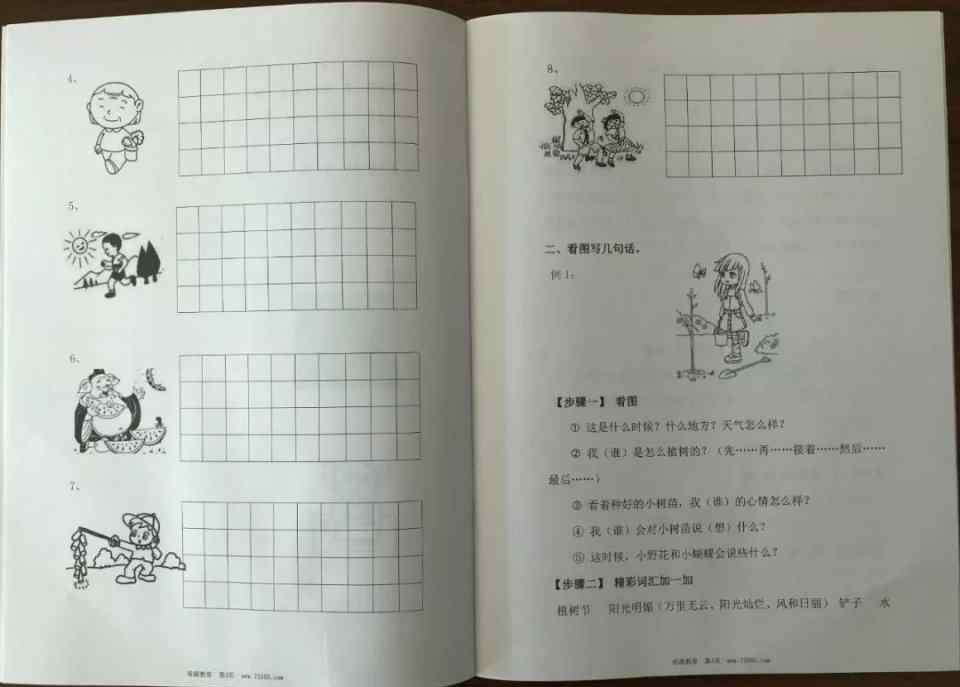 4、
5、
6、
7、
8、
二、看图写几句话。
例 1:
【步骤一】 看图
① 这是什么时候？什么地方？天气怎么样？
② 我（谁）是怎么植树的？（先……再……接着……然后……
最后……）
③ 看着种好的小树苗，我（谁）的心情怎么样？
④ 我（谁）会对小树苗说（想）什么？
⑤ 这时候，小野花和小蝴蝶会说些什么？
【步骤二】 精彩词汇加一加
植树节 阳光明媚（万里无云、阳光灿烂、风和日丽） 铲子 水